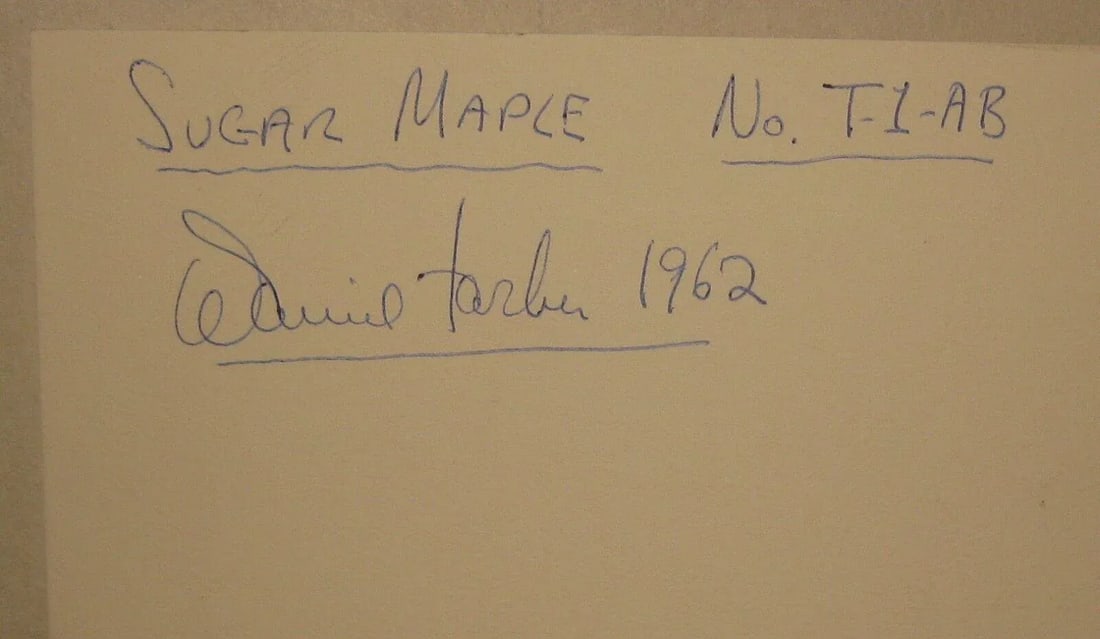 SUGAR MAPLE No. T-1-AB
Daniel Farber 1962